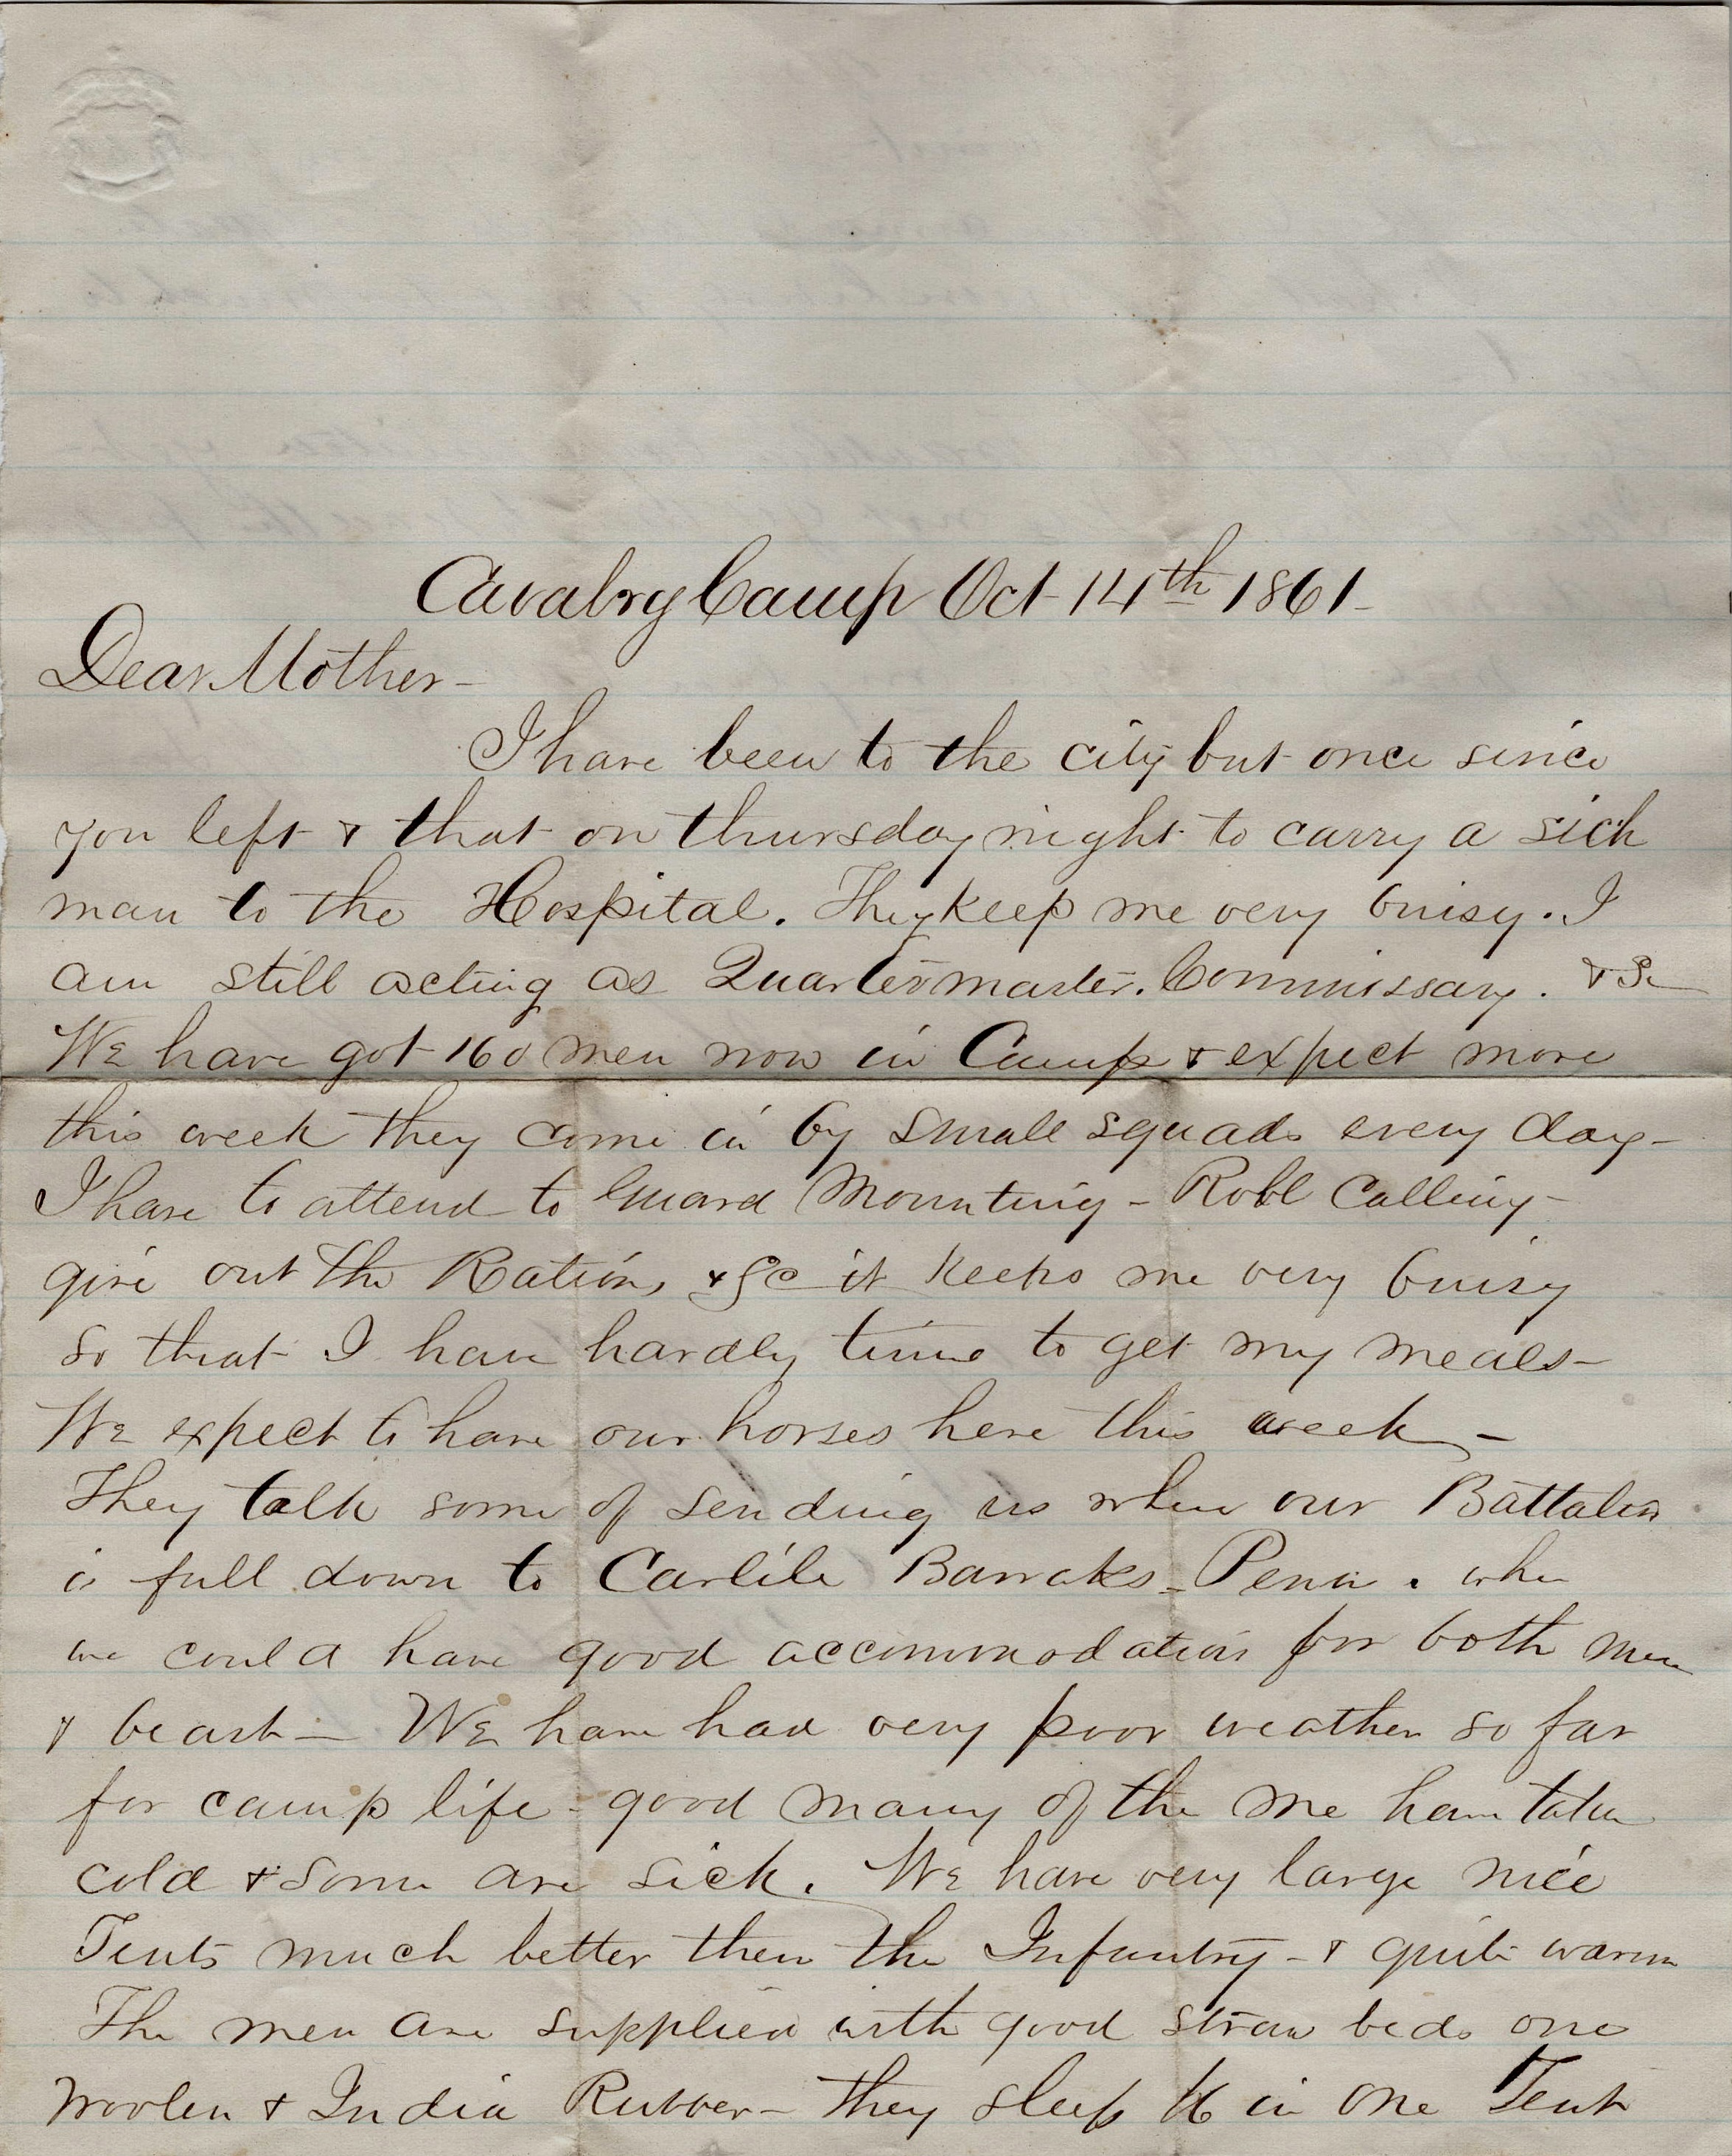 Cavalry Camp Oct 14th 1861-
Dear Mother-
I have been to the city but once since
you left & that on thursday night to carry a sick
man to the Hospital. They keep me very buisy. I
am still acting as Quartermaster. Commissary. & Sc
We have got 160 men now in Camp & expect more
this week they come in by small squads every day-
I have to attend to Guard Mounting - Roll Calling-
give out the Rations &c it keeps me very buisy
so that I have hardly time to get my meals-
We expect to have our horses here this week-
They talk some of sending us when our Battalion
is full down to Carlile Barraks - Penn. when
we could have good accommodations for both men
& beast - We have had very poor weather so far
for camp life - good many of the me have taken
cold & some are sick. We have very large nice
Tents much better then the Infantry - & quite warm
The men are supplied with good straw beds one
Woolen & India Rubber - they sleep 16 in one Tent